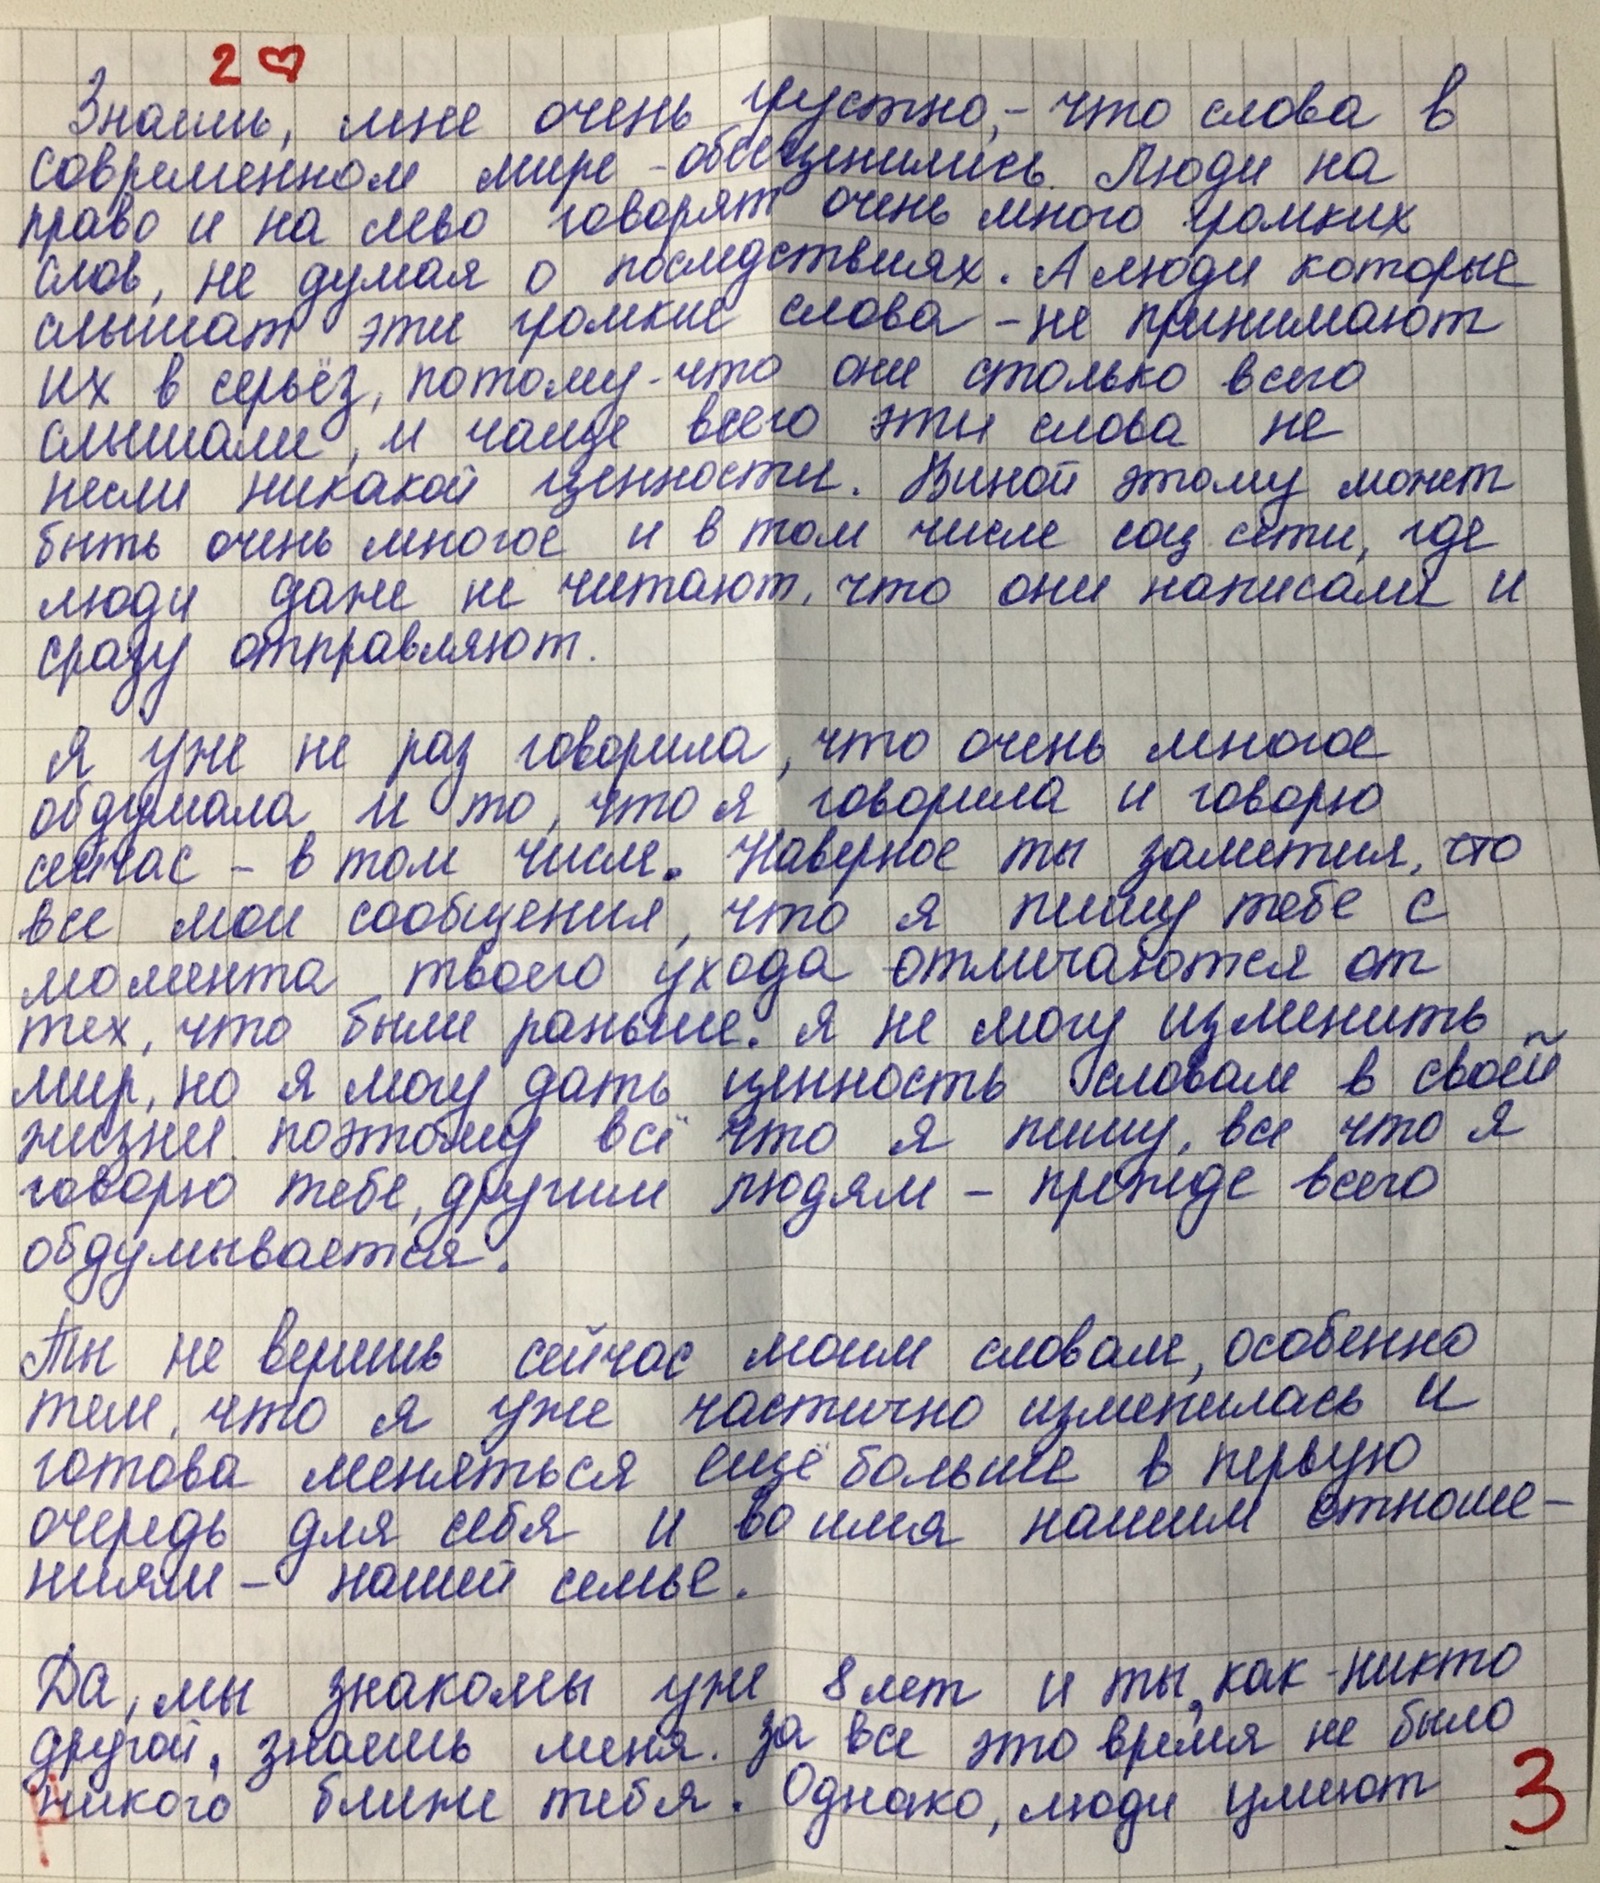 2 ♡
Знаешь, мне очень грустно, - что слова в
современном мире - обесценились. Люди на
право и на лево говорят очень много громких
слов, не думая о последствиях. А люди которые
слышат эти громкие слова - не принимают
их в серьёз, потому-что они столько всего
слышали, и чаще всего эти слова не
несли никакой ценности. Виной этому может
быть очень многое и в том числе соц сети, где
люди даже не читают, что они написали и
сразу отправляют.
Я уже не раз говорила, что очень многое
обдумала и то, что я говорила и говорю
сейчас - в том числе. Наверное ты заметил, что
все мои сообщения, что я пишу тебе с
момента твоего ухода отличаются от
тех, что были раньше. Я не могу изменить
мир, но я могу дать ценность словам в своей
жизни поэтому всё что я пишу, все что я
говорю тебе, другим людям - прежде всего
обдумывается.
Ты не веришь сейчас моим словам, особенно
тем, что я уже частично изменилась и
готова меняться ещё больше в первую
очередь для себя и во имя нашим отноше-
ниям - нашей семье.
Да, мы знакомы уже 8 лет и ты, как-никто
другой, знаешь меня. За все это время не было
никого ближе тебя. Однако, люди умеют
3